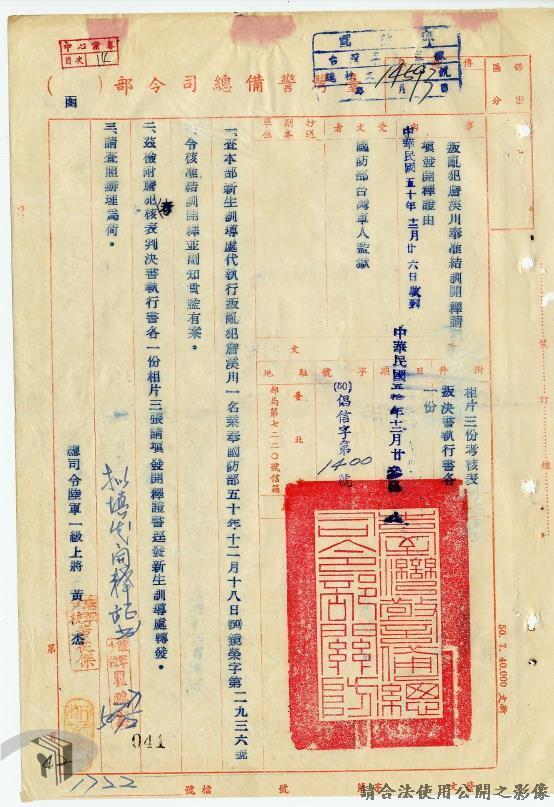 臺灣警備總司令部（函）
事由
叛亂犯唐溪川奉准結訓開釋請
填發開釋證由
中華民國五十年十二月廿六日收到
受文者
國防部台灣軍人監獄
副本抄送單位
附件
相片三份考核表
叛決書執行書各
一份
發文
日期
中華民國五拾年十二月廿
字號
(50)倡信字第1400號
駐地
臺北
郵局第七二二〇號信箱
一、查本部新生訓導處代執行叛亂犯唐溪川一名業奉國防部五十年十二月十八日(50)鏡榮字第二九三六號
令核准結訓開釋並副知貴監有案。
二、茲檢附唐犯考核表判決書執行書各一份相片三張請填發開釋證書逕發新生訓導處轉發。
三、請查照辦理為荷。
總司令陸軍一級上將 黃杰
擬填發開釋證書
臺灣警備總司令部關防
保密區分
裝訂線
50. 7. 40,000
目次
14597
041
1722
第
檔號
請合法使用公開之影像